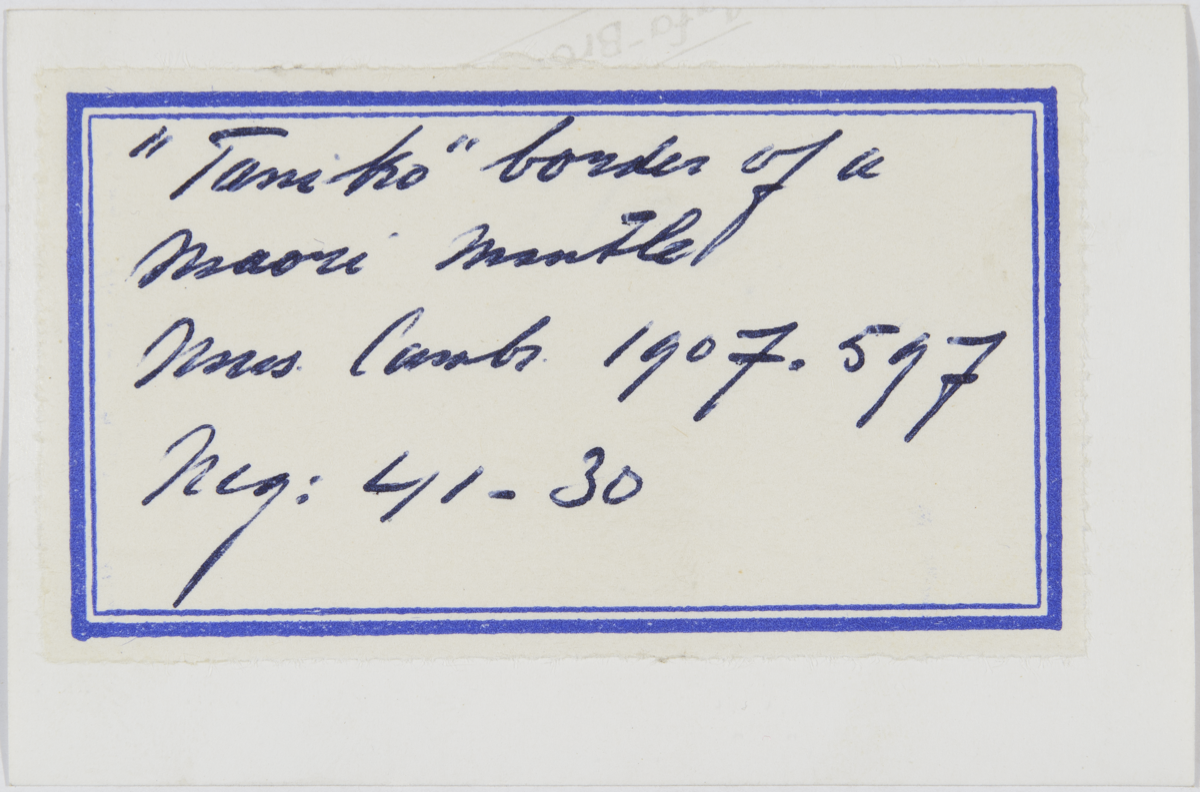 "Taniko" border of a
Maori Mantle
Mus. Camb. 1907.597
Neg: 41-30